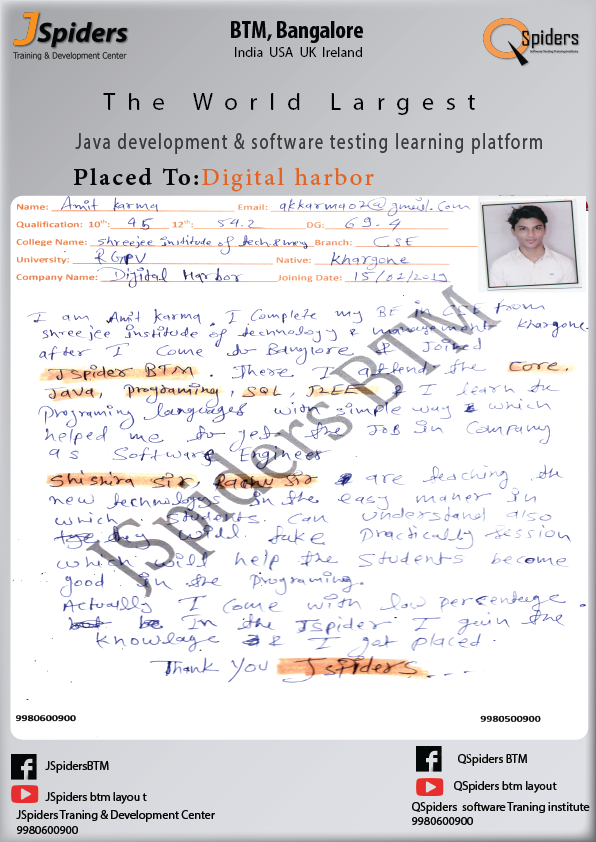 JSpiders
Training & Development Center
BTM, Bangalore
India USA UK Ireland
QSpiders
Software Testing Training Institute
The World Largest
Java development & software testing learning platform
Placed To:Digital harbor
Name: Amit Karma Email: akkarma02@gmail.com
Qualification: 10th: 45 12th: 54.2 DG: 69.4
College Name: Shreejee institute of tech & mgy Branch: CSE
University: RGPV Native: Khargone
Company Name: Digital Harbor Joining Date: 15/02/2019
I am Amit karma. I Complete my BE in CSE from
shreejee institute of technology & management Khargone
after I Come to Banglore & Joined
JSpider BTM. There I attend the Core
Java, Programing, SQL, J2EE & I learn the
Programing languages with simple way & which
helped me to get the Job in Company
as Software Engineer
Shishira Sir, Raghu Sir are teaching the
new technologys in the easy maner in
which Students Can understand also
they will take Practically session
which will help the Students become
good in the Programing.
Actually I Come with low percentage.
but In the JSpider I gain the
Knowlage & I got placed.
Thank you Jspiders...
JSpiders BTM
9980600900
9980500900
JSpidersBTM
JSpiders btm layou t
JSpiders Traning & Development Center
9980600900
QSpiders BTM
QSpiders btm layout
QSpiders software Traning institute
9980600900